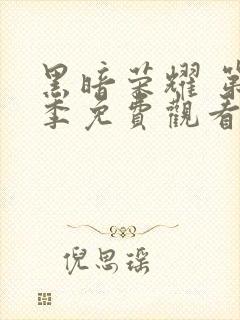 黑暗荣耀 第
季免費觀看
倪思瑶